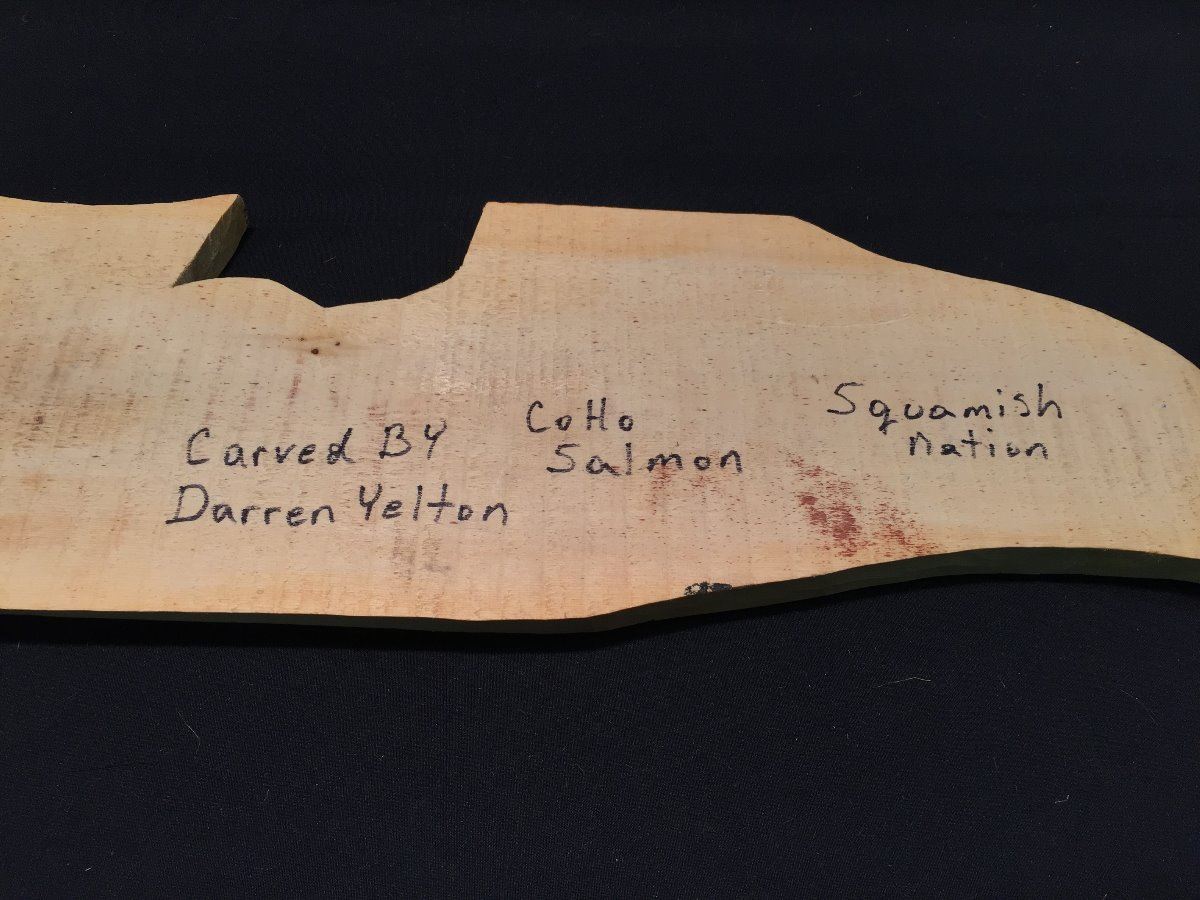 Carved By
Darren Yelton
CoHo
Salmon
Squamish
Nation